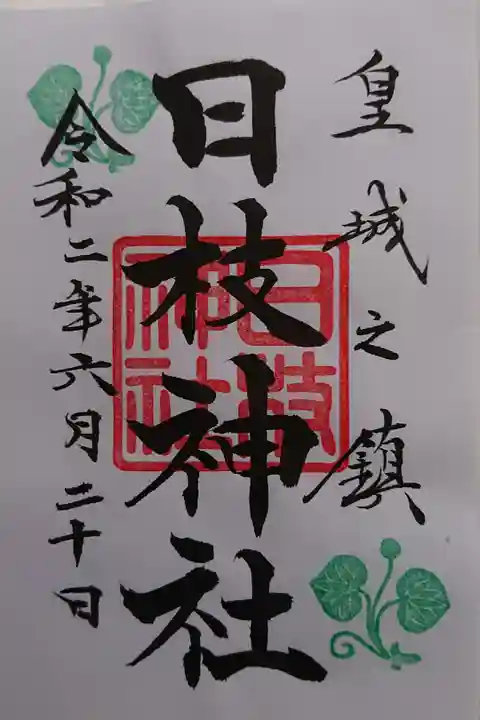 皇城之鎮
日枝神社
日枝神社
令和二年六月二十日